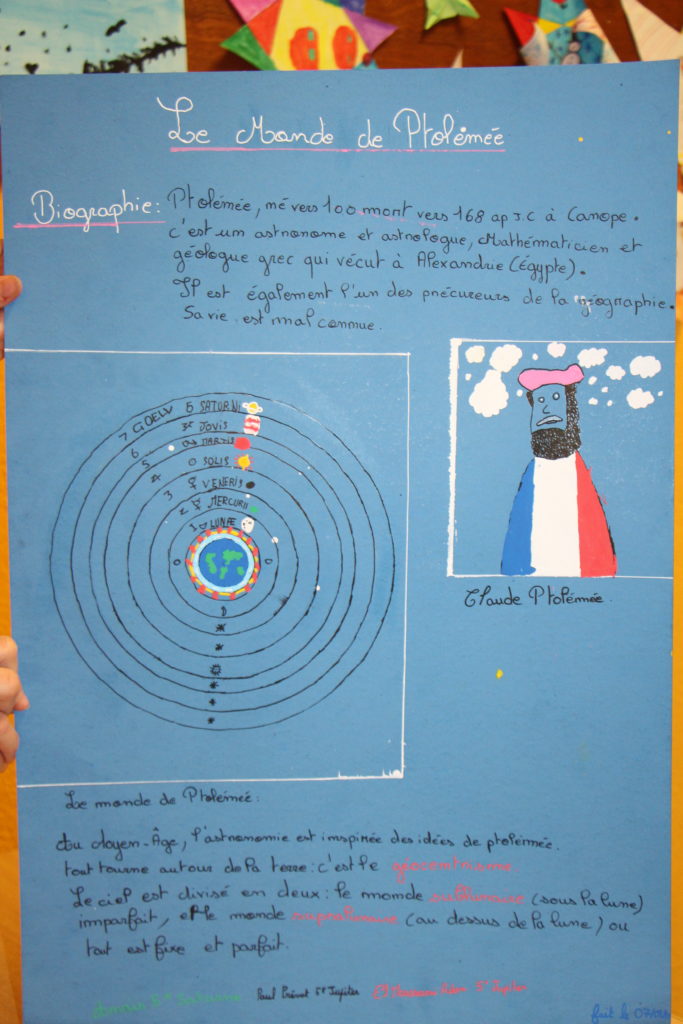 Le Monde de Ptolémée
Biographie: Ptolémée, né vers 100 mont vers 168 ap J.C à Canope.
c'est un astronome et astrologue, Mathématicien et
géologue grec qui vécut à Alexandrie (Égypte).
Il est également l'un des précureurs de la géographie.
Sa vie est mal connue.
7 GOELV ♄ SATURNI
6 ♃ JOVIS
5 ♂ MARTIS
4 ☉ SOLIS
3 ♀ VENERIS
2 ☿ MERCURII
1 ☽ LUNÆ
Claude Ptolémée.
Le monde de Ptolémée:
Au Moyen-Âge, l'astronomie est inspirée des idées de ptolémée.
tout tourne autour de la terre: c'est le géocentrisme
Le ciel est divisé en deux: le monde sublunaire (sous la lune)
imparfait, et le monde supralunaire (au dessus de la lune) ou
tout est fixe et parfait.
5e Saturne Paul 5e Jupiter 5e Jupiter
fait le